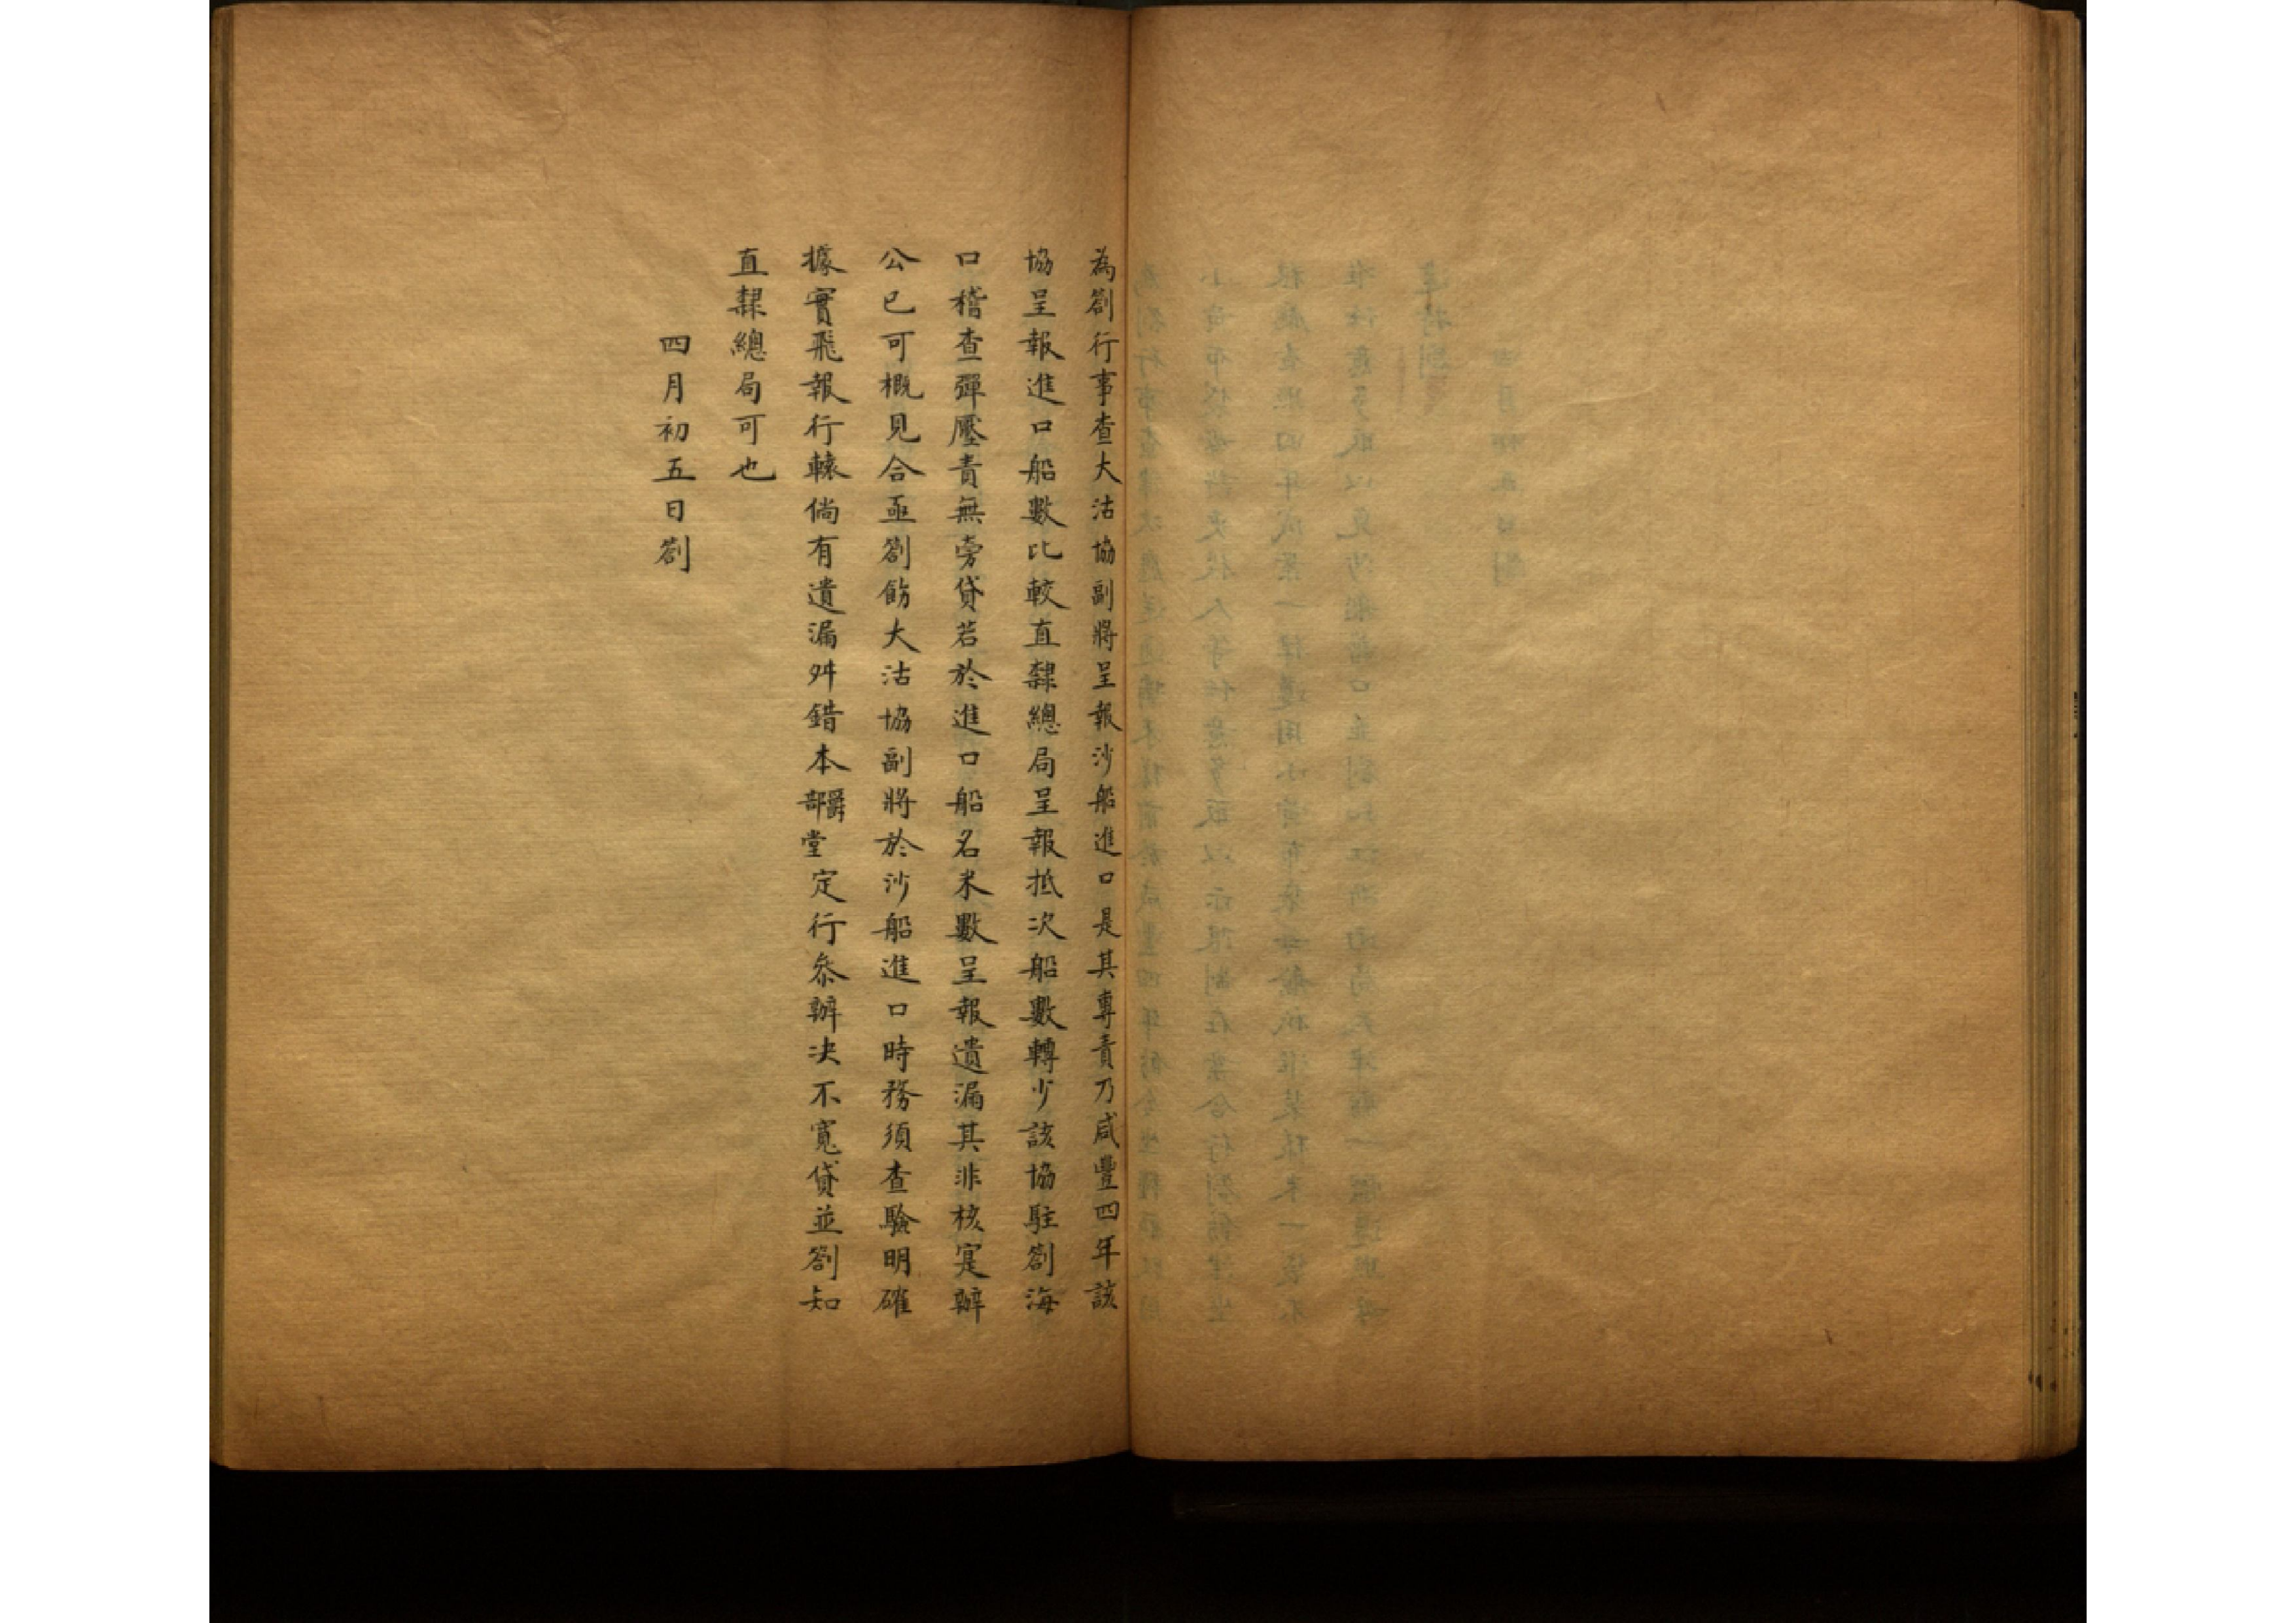 為劄行事查大沽協副將呈報沙船進口是其專責乃咸豐四年該
協呈報進口船數比較直隸總局呈報抵次船數轉少該協駐劄海
口稽查彈壓責無旁貸若於進口船名米數呈報遺漏其非核寔辦
公已可概見合亟劄飭大沽協副將於沙船進口時務須查驗明確
據實飛報行轅倘有遺漏舛錯本部爵堂定行叅辦决不寬貸並劄知
直隸總局可也
四月初五日劄